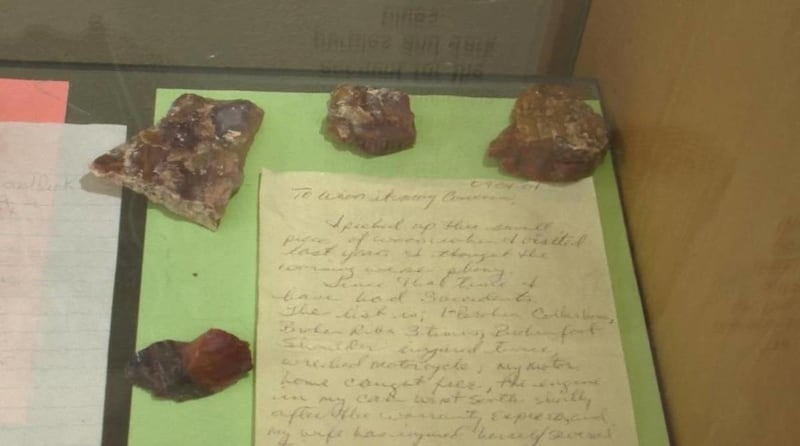 account for the
purples and dark
blues
To Whom it may Concern,
I picked up this small
piece of wood when I visited
last year. I thought the
warning were phony.
Since that time I
have had 5 accidents.
The list is; 1-Broken Collarbone,
Broken Ribs 3 times, Broken foot
Shoulder injured twice
wrecked motorcycle, my motor
home caught fire, the engine
in my car went south shortly
after the warranty expired, and
my wife has injured herself several